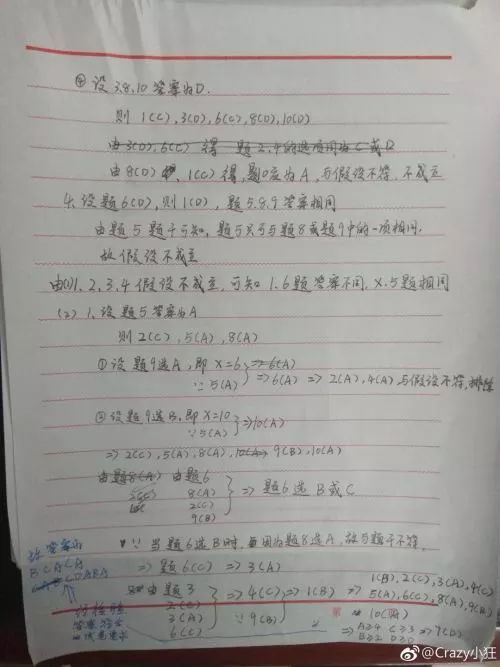 ④ 设 3.8.10 答案为D.
则 1(C), 3(D), 6(C), 8(D), 10(D)
由 3(D), 6(C) 得 题 2.4的选项同为 C 或 D
由 8(D) 1(C) 得, 题10应为 A, 与假设不符, 不成立
4. 设题 6(D), 则 1(D), 题 5.8.9 答案相同
由题 5 题干可知, 题 5 只可与题 8 或题 9 中的一项相同.
故假设不成立
由(1)1, 2, 3, 4 假设不成立, 可知 1.6题答案不同, X.5题相同
(2) 1. 设题 5 答案为 A
则 2(C), 5(A), 8(A)
① 设 题 9 选 A, 即 X=6 => 6(A)
∵ 5(A) => 6(A) => 2(A), 4(A) 与假设不符, 排除
② 设题 9 选 B, 即 X=10
∵ 5(A) => 10(A)
=> 2(C), 5(A), 8(A), 10(A)=> 9(B), 10(A)
由题8(A) 由题6
2(C) 8(A)
2(C)
9(B)
=> 题 6 选 B 或 C
∵ 当题 6 选 B 时, 因为题 8 选 A, 故与题干不符.
=> 题 6(C) => 3(A)
由题 3
2(C)
3(A)
6(C)
=> 4(C)
∵ 9(B)
=> 1(B) =>
1(B), 2(C), 3(A), 4(C)
5(A), 6(C), 8(A), 9(B)
10(A)
=> A≥4 C≥3 => 7(D)
B≥2 D≥0
答案为
BCACA
CDABA
经检验
答案符合
@Crazy小狂